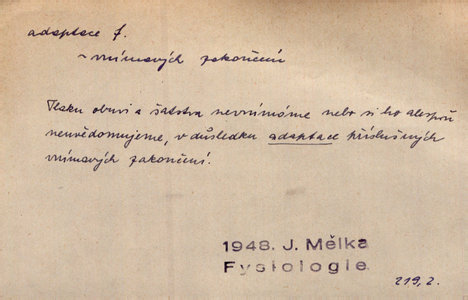 adaptace f.
~ vnímavých zakončení
Tlaku obuvi a šatstva nevnímáme nebo si ho alespoň
neuvědomujeme, v důsledku adaptace příslušných
vnímavých zakončení.
1948. J. Mělka
Fysiologie
219, 2.